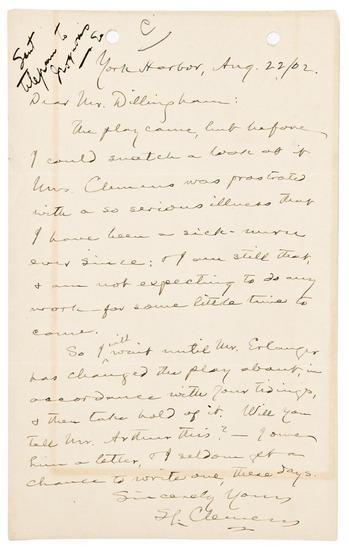 C
Sent
York Harbor, Aug. 22/02.
Dear Mr. Dillingham:
The play came, but before
I could snatch a look at it
Mrs. Clemens was prostrated
with a so serious illness that
I have been a sick-nurse
ever since; & I am still that,
& am not expecting to do any
work for some little time to
come.
So I will wait until Mr. Erlanger
has changed the play about, in
accordance with your tidings,
& then take hold of it. Will you
tell Mr. Arthur this? — I owe
him a letter, & I seldom get a
chance to write one, these days.
Sincerely Yours
SL. Clemens